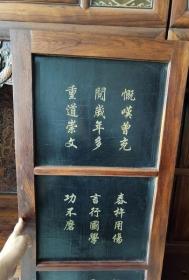 慨嘆曾克
閱歲年多
重道崇文
春杵用傷
言行國學
功不磨